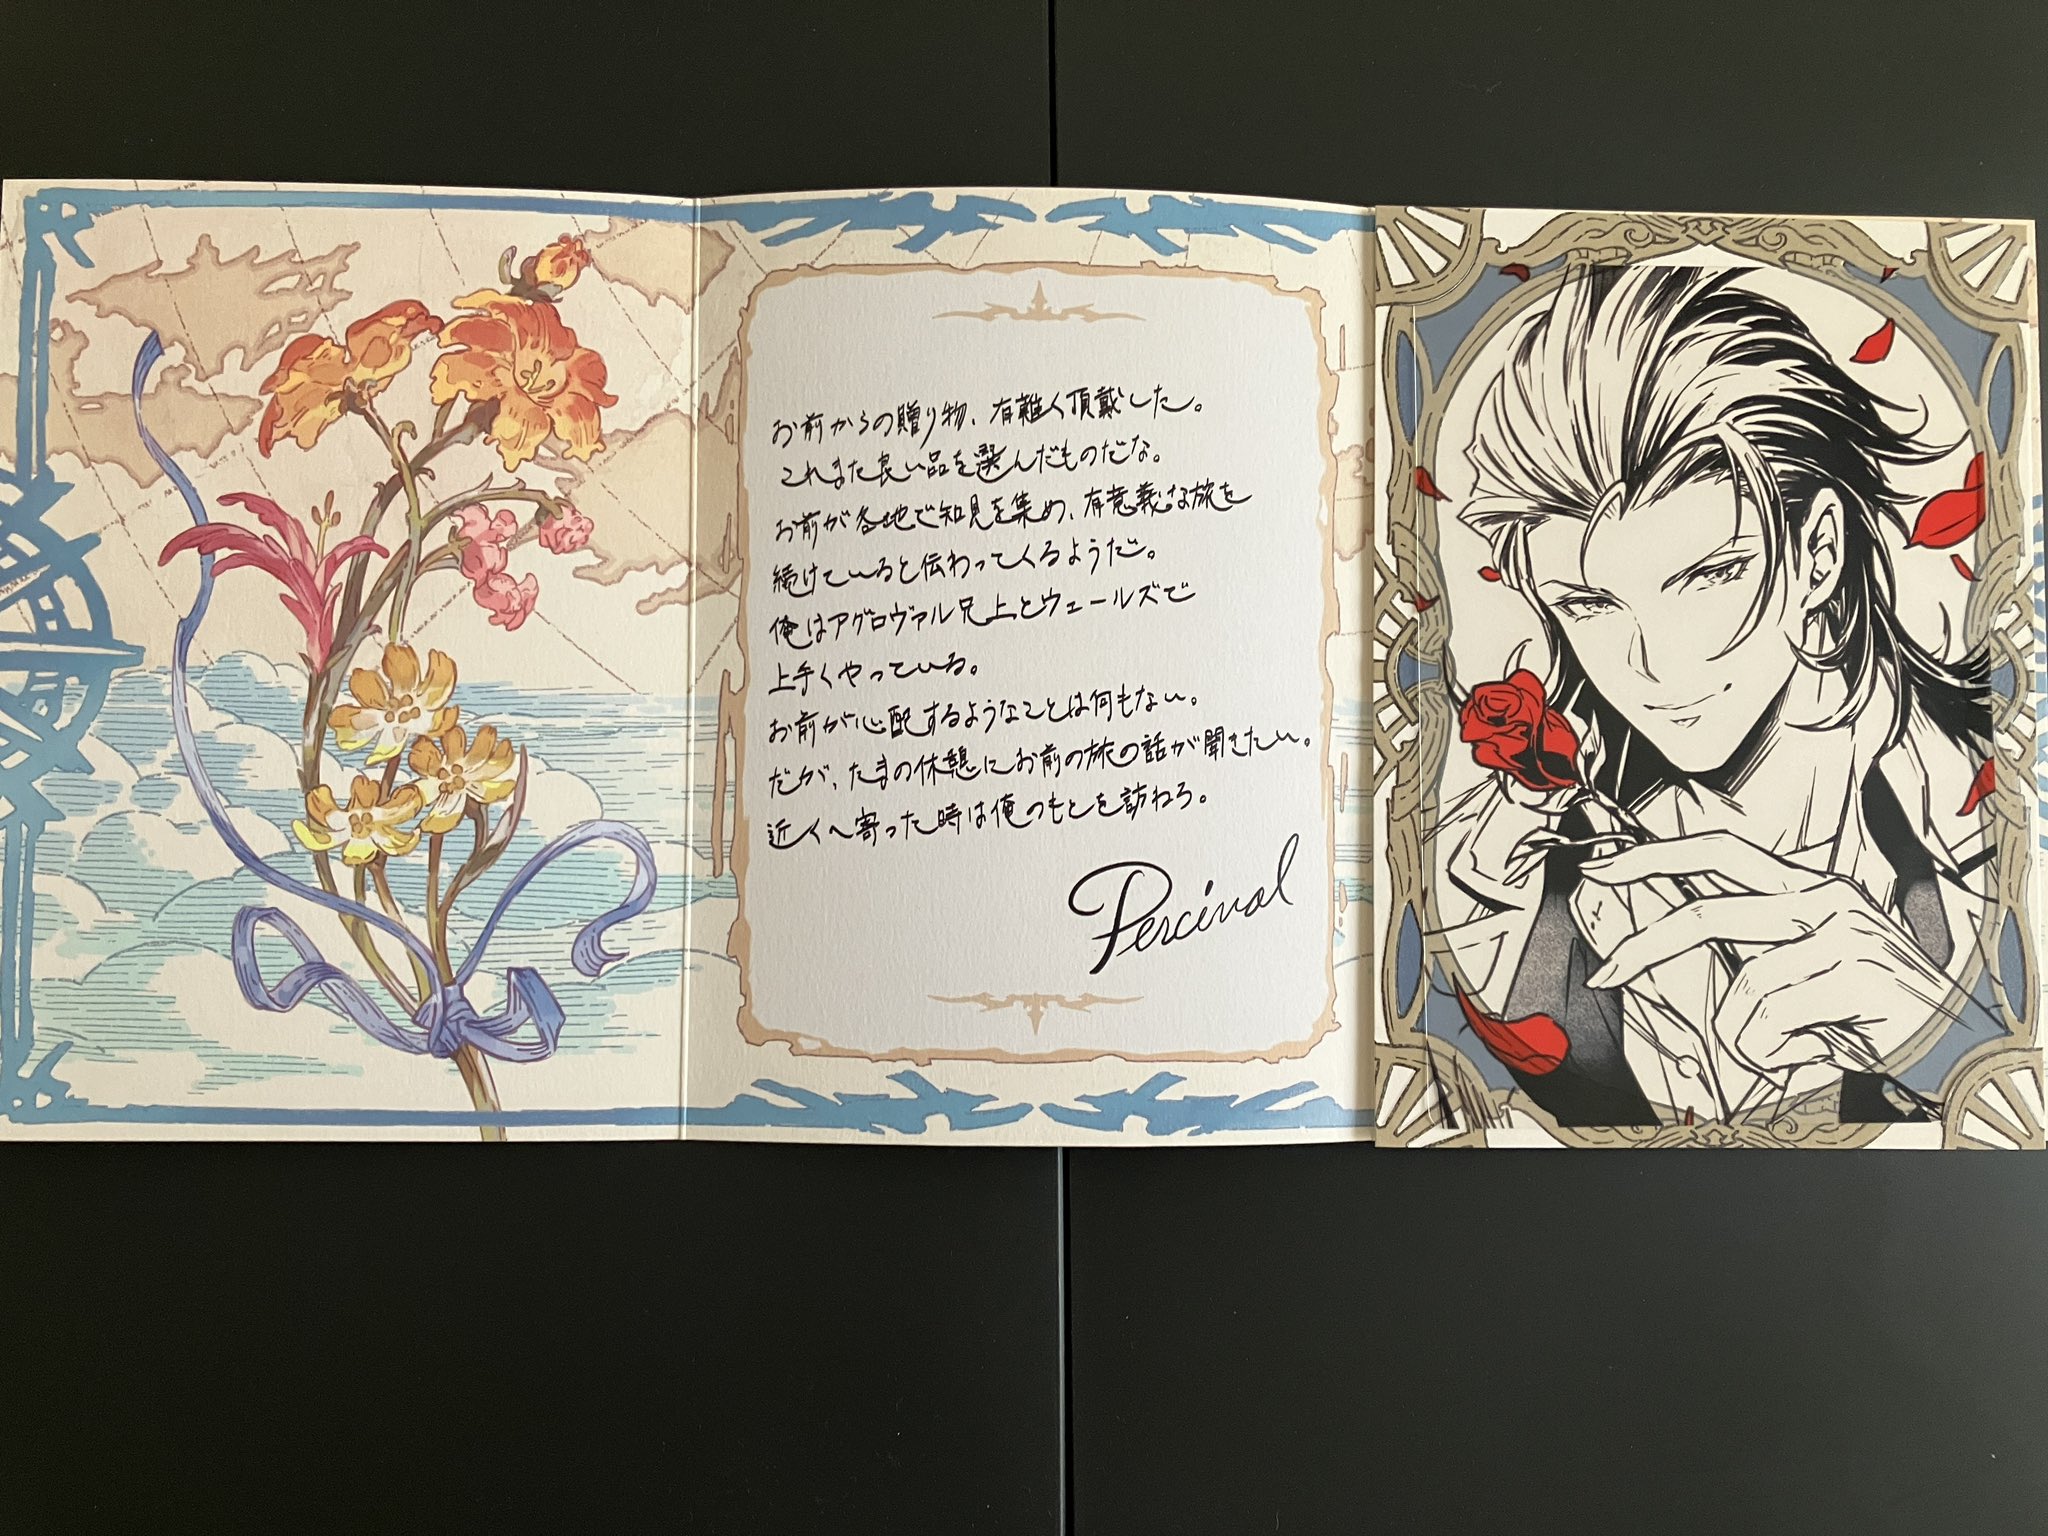 お前からの贈り物、有難く頂戴した。
これまた良い品を選んだものだな。
お前が各地で知見を集め、有意義な旅を
続けていると伝わってくるようだ。
俺はアグロヴァル兄上とウェールズで
上手くやっている。
お前が心配するようなことは何もない。
だが、たまの休憩にお前の旅の話が聞きたい。
近くへ寄った時は俺のもとを訪ねろ。
Percival